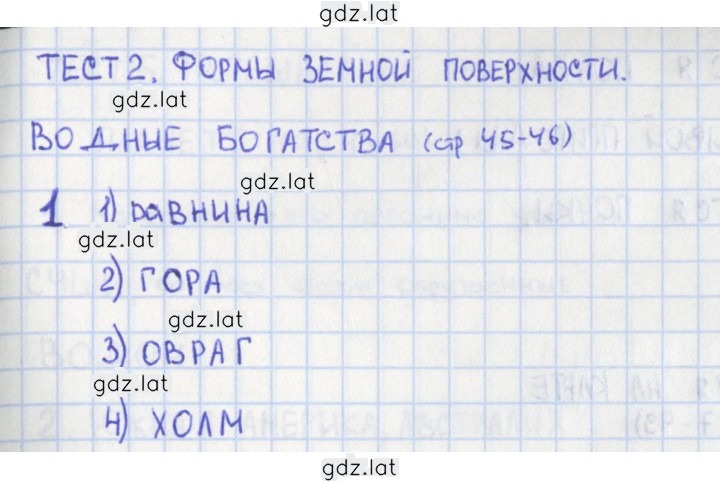 gdz.lat
ТЕСТ 2. ФОРМЫ ЗЕМНОЙ ПОВЕРХНОСТИ.
gdz.lat
ВОДНЫЕ БОГАТСТВА (стр 45-46)
gdz.lat
1 1) раВНИНА
gdz.lat
2) ГОРА
gdz.lat
3) ОВРАГ
gdz.lat
4) ХОЛМ
gdz.lat